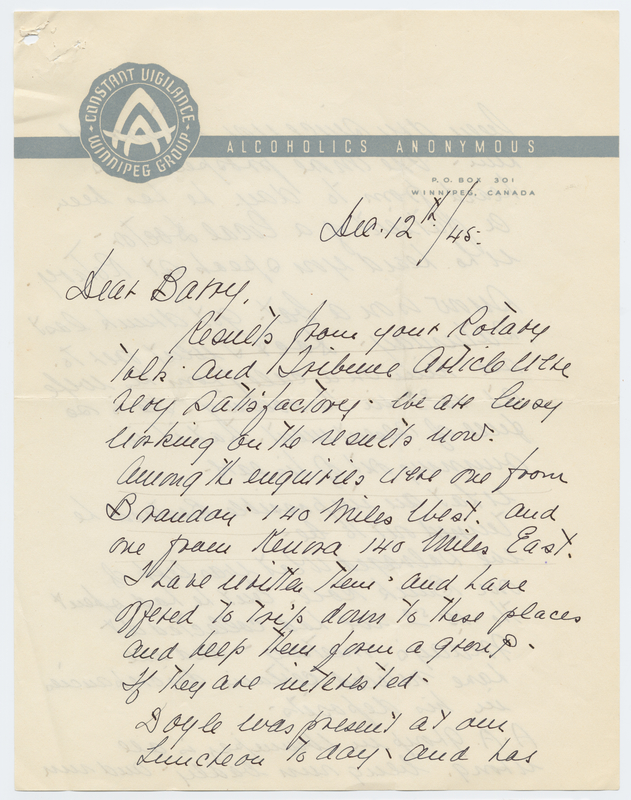 CONSTANT VIGILANCE
AA
WINNIPEG GROUP
ALCOHOLICS ANONYMOUS
P.O. BOX 301
WINNIPEG, CANADA
Dec. 12th/45-
Dear Barry,
Results from your Rotary
talk and Tribune Article were
very satisfactory. We are busy
working on the results now.
Among the enquiries were one from
Brandon 140 Miles West. and
one from Kenora 140 Miles East.
I have written them and have
offered to trip down to these places
and help them form a group.
If they are interested.
Doyle was present at our
Luncheon today and has